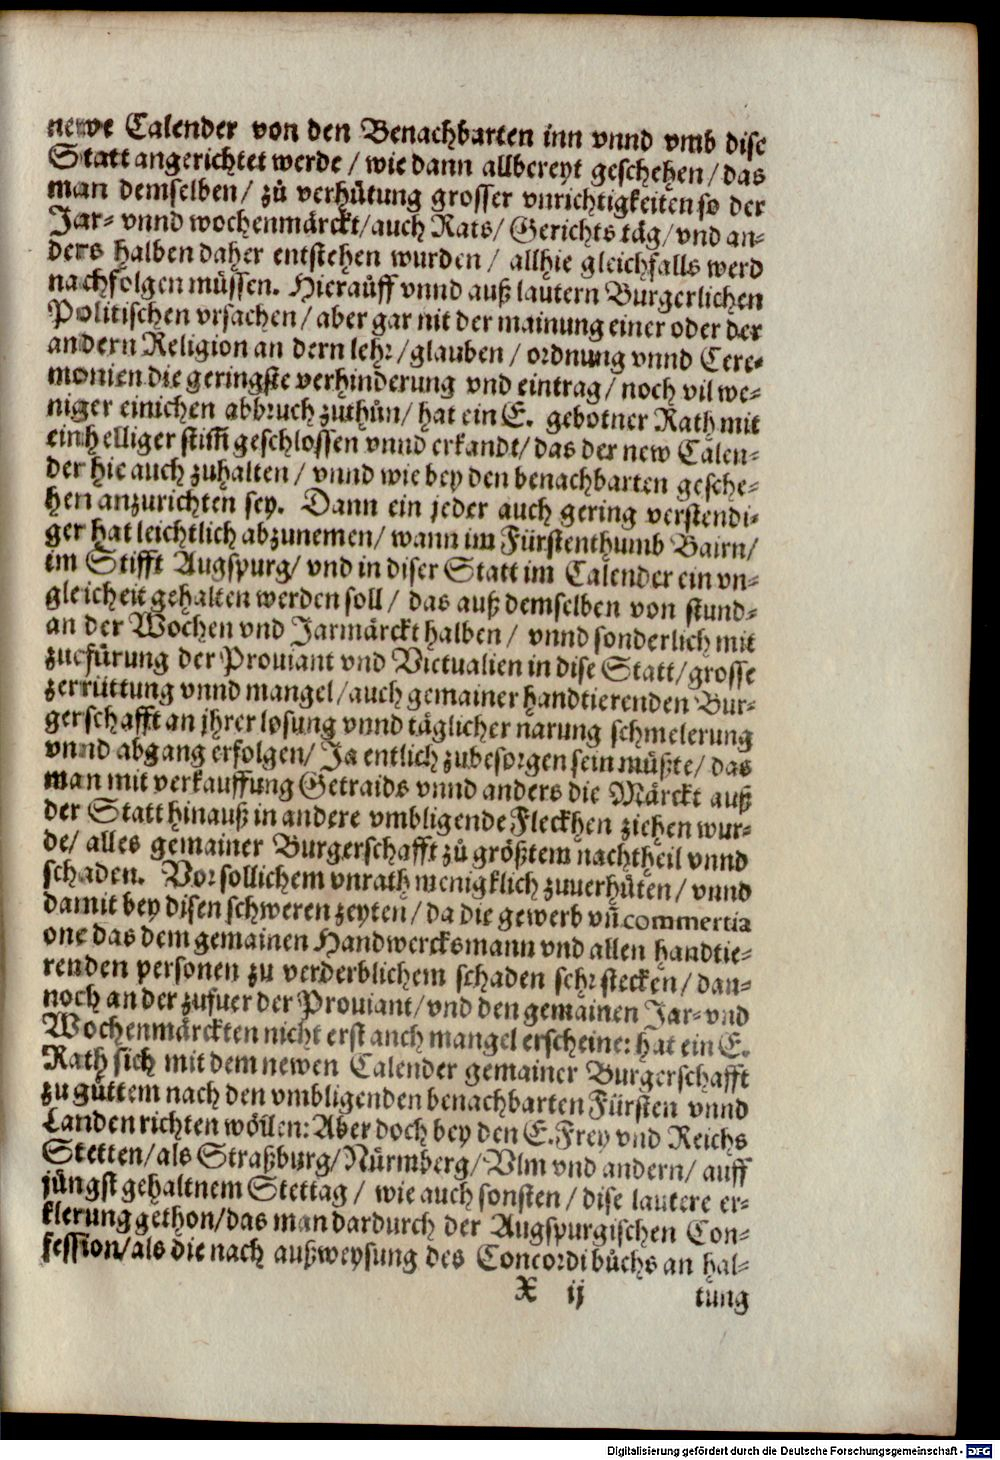 newe Calender von den Benachbarten inn vnnd vmb dise
Statt angerichtet werde / wie dann allbereyt geschehen / das
man demselben / zů verhůtung grosser vnrichtigkeiten so der
Jar- vnnd wochenmärckt / auch Rats / Gerichts täg / vnd an-
ders halben daher entstehen wurden / allhie gleichfalls werd
nachfolgen müssen. Hierauff vnnd auß lautern Burgerlichen
Politischen vrsachen / aber gar nit der mainung einer oder der
andern Religion an dern lehr / glauben / ordnung vnnd Cere-
monien die geringste verhinderung vnd eintrag / noch vil we-
niger einichen abbruch zuthůn / hat ein E. gebotner Rath mit
einhelliger stiṁ geschlossen vnnd erkandt / das der new Calen-
der hie auch zuhalten / vnnd wie bey den benachbarten gesche-
hen anzurichten sey. Dann ein jeder auch gering verstendi-
ger hat leichtlich abzunemen / wann im Fürstenthumb Bairn /
im Stifft Augspurg / vnd in diser Statt im Calender ein vn-
gleicheit gehalten werden soll / das auß demselben von stund-
an der Wochen vnd Jarmärckt halben / vnnd sonderlich mit
zuefürung der Prouiant vnd Victualien in dise Statt / grosse
zerrüttung vnnd mangel / auch gemainer handtierenden Bur-
gerschafft an jhrer losung vnnd täglicher narung schmelerung
vnnd abgang erfolgen / Ja entlich zubesorgen sein müßte / das
man mit verkauffung Getraids vnnd anders die Märckt auß
der Statt hinauß in andere vmbligende Fleckhen ziehen wur-
de / alles gemainer Burgerschafft zů größtem nachtheil vnnd
schaden. Vor sollichem vnrath menigklich zuuerhůten / vnnd
damit bey disen schweren zeyten / da die gewerb vñ commertia
one das dem gemainen Handwercksmann vnd allen handtie-
renden personen zu verderblichem schaden sehr stecken / dan-
noch an der zufuer der Prouiant / vnd den gemainen Jar- vnd
Wochenmärckten nicht erst auch mangel erscheine: hat ein E.
Rath sich mit dem newen Calender gemainer Burgerschafft
zu gůttem nach den vmbligenden benachbarten Fürsten vnnd
Landen richten wöllen: Aber doch bey den E. Frey vnd Reichs
Stetten / als Straßburg / Nürmberg / Vlm vnd andern / auff
jüngst gehaltnem Stettag / wie auch sonsten / dise lautere er-
klerung gethon / das man dardurch der Augspurgischen Con-
fession / als die nach außweysung des Concordi bůchs an hal-
X ij tung
Digitalisierung gefördert durch die Deutsche Forschungsgemeinschaft - DFG